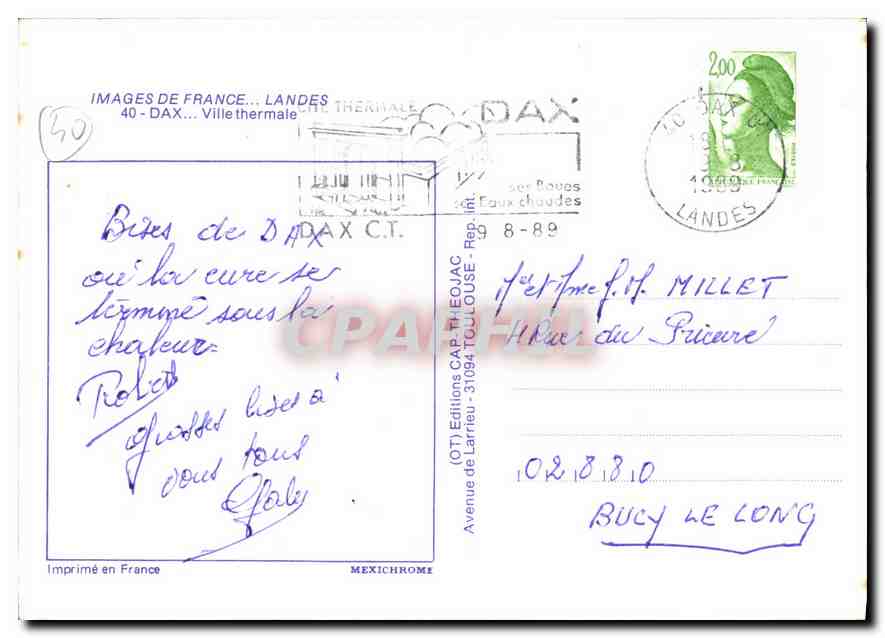 IMAGES DE FRANCE... LANDES
40 - DAX... Ville thermale
40
THERMALE
DAX
ses Boues
ses Eaux chaudes
DAX C.T.
9 8-89
2,00
40 DAX
1989
LANDES
Bises de DAX
où la cure se
termine sous la
chaleur
Grosses bises à
vous tous
Gaby
(OT) Editions CAP-THEOJAC
Avenue de Larrieu - 31094 TOULOUSE - Rep. int.
Mr et Mme J.M. MILLET
4 Rue du Prieuré
02880
BUCY LE LONG
CPAPHIL
Imprimé en France
MEXICHROME